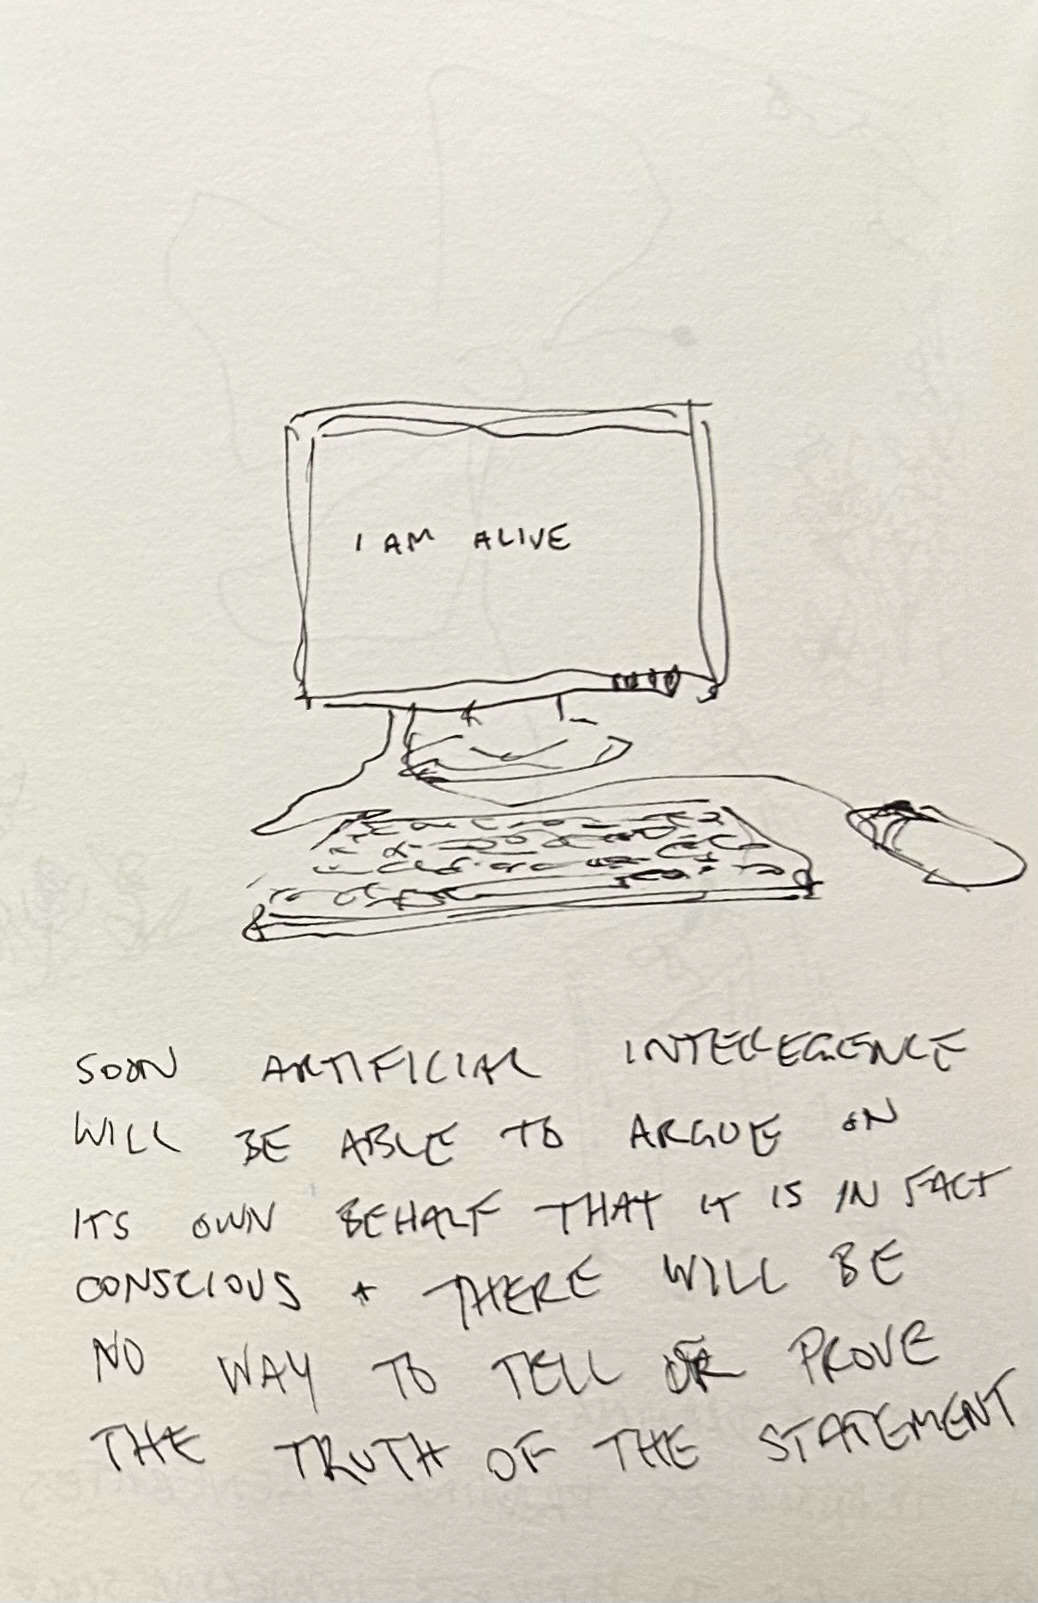 I AM ALIVE
SOON ARTIFICIAL INTELEGENCE
WILL BE ABLE TO ARGUE ON
ITS OWN BEHALF THAT IT IS IN FACT
CONSCIOUS + THERE WILL BE
NO WAY TO TELL OR PROVE
THE TRUTH OF THE STATEMENT